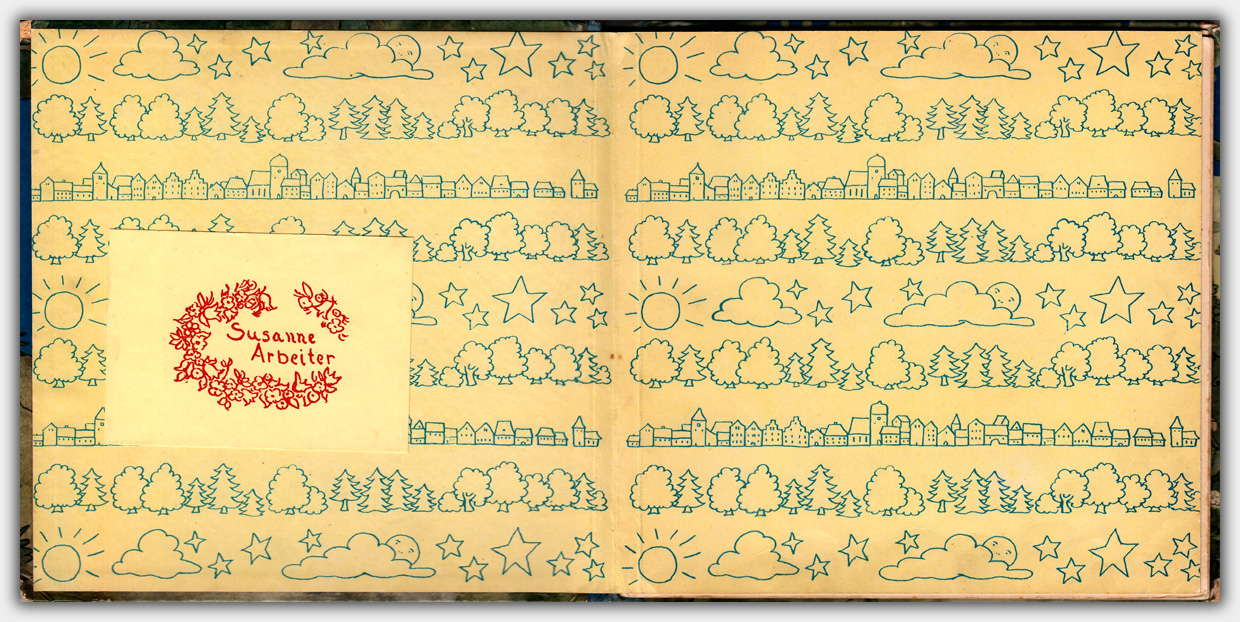 Susanne
Arbeiter